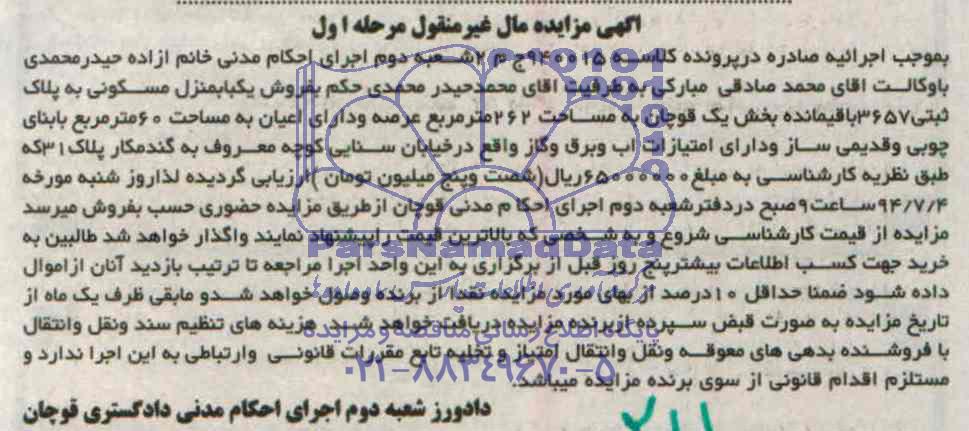 اگهی مزایده مال غیرمنقول مرحله اول
بموجب اجرائیه صادره درپرونده کلاسه ۹۴۰۰۱۵ج م ۲شعبه دوم اجرای احکام مدنی خانم ازاده حیدرمحمدی
باوکالت اقای محمد صادقی مبارکی به طرفیت اقای محمدحیدر محمدی حکم بفروش یکبابمنزل مسکونی به پلاک
ثبتی۳۶۵۷باقیمانده بخش یک قوچان به مساحت ۲۶۲مترمربع عرصه ودارای اعیان به مساحت ۶۰مترمربع بابنای
چوبی وقدیمی ساز ودارای امتیازات اب وبرق وگاز واقع درخیابان سنایی کوچه معروف به گندمکار پلاک۳۱که
طبق نظریه کارشناسی به مبلغ۶۵۰۰۰۰۰۰۰ریال(شصت وپنج میلیون تومان )ارزیابی گردیده لذاروز شنبه مورخه
۹۴/۷/۴ساعت۹صبح دردفترشعبه دوم اجرای احکا م مدنی قوچان ازطریق مزایده حضوری حسب بفروش میرسد
مزایده از قیمت کارشناسی شروع و به شخصی که بالاترین قیمت راپیشنهاد نمایند واگذار خواهد شد طالبین به
خرید جهت کسب اطلاعات بیشترپنج روز قبل از برگزاری به این واحد اجرا مراجعه تا ترتیب بازدید آنان ازاموال
داده شود ضمنا حداقل ۱۰درصد از بهای مورد مزایده نقدا از برنده وصول خواهد شدو مابقی ظرف یک ماه از
تاریخ مزایده به صورت قبض سپرده ازبرنده مزایده دریافت خواهد شد . هزینه های تنظیم سند ونقل وانتقال
با فروشنده بدهی های معوقه ونقل وانتقال امتیاز و تخلیه تابع مقررات قانونی وارتباطی به این اجرا ندارد و
مستلزم اقدام قانونی از سوی برنده مزایده میباشد.
دادورز شعبه دوم اجرای احکام مدنی دادگستری قوچان
ParsNamadData
پایگاه اطلاع رسانی مناقصه و مزایده
۰۲۱-۸۸۳۴۹۶۷۰-۵